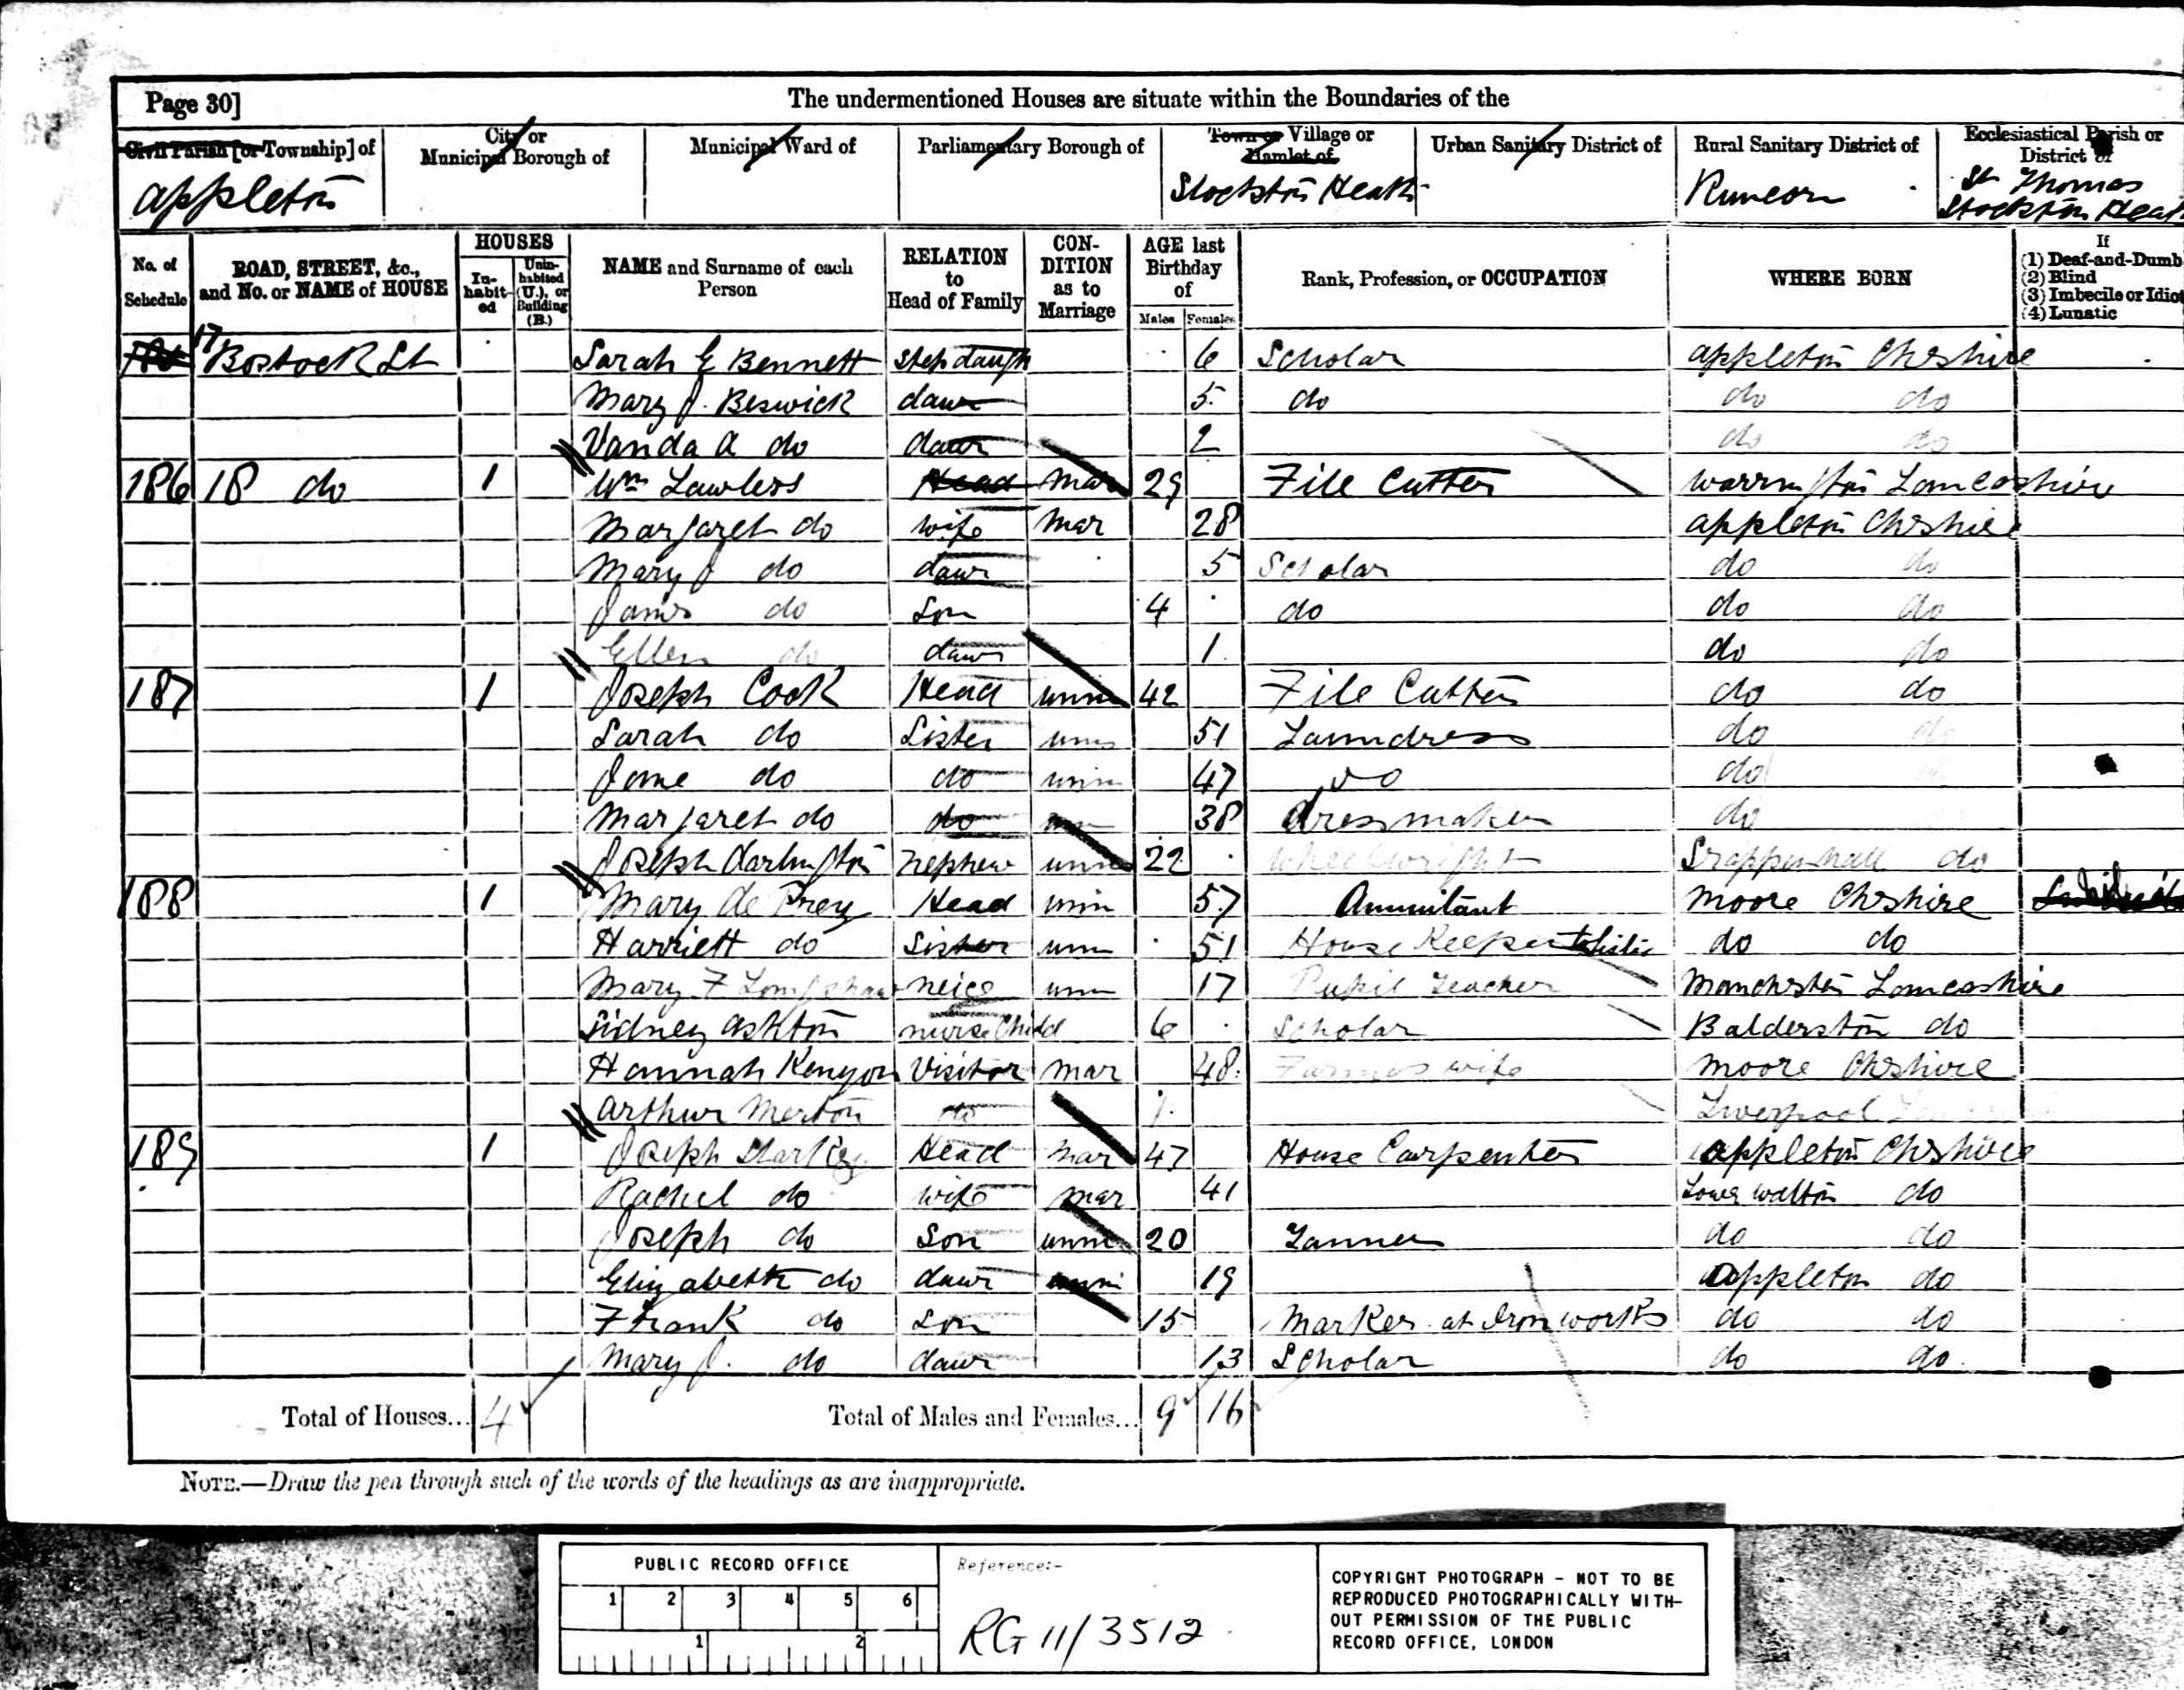 Page 30]
The undermentioned Houses are situate within the Boundaries of the
Civil Parish [or Township] of
City or Municipal Borough of
Municipal Ward of
Parliamentary Borough of
Town or Village or Hamlet of
Urban Sanitary District of
Rural Sanitary District of
Ecclesiastical Parish or District of
Appleton
Stockton Heath
Runcorn
St Thomas
Stockton Heath
No. of Schedule
ROAD, STREET, &c., and No. or NAME of HOUSE
HOUSES
In-habit-ed
Unin-habited (U.), or Building (B.)
NAME and Surname of each Person
RELATION to Head of Family
CON-DITION as to Marriage
AGE last Birthday of
Males Females
Rank, Profession, or OCCUPATION
WHERE BORN
If
(1) Deaf-and-Dumb
(2) Blind
(3) Imbecile or Idiot
(4) Lunatic
17 Bostock St Sarah E Bennett Step daugh 6 Scholar Appleton Cheshire
Mary J. Beswick daur 5 do do do
Vanda A do daur 2 do do
186 18 do 1 Wm Lawless Head Mar 29 File Cutter Warrington Lancashire
Margaret do wife Mar 28 Appleton Cheshire
Mary J do daur 5 Scholar do do
James do Son 4 do do do
Ellen do daur 1 do do
187 1 Joseph Cook Head unm 42 File Cutter do do
Sarah do Sister unm 51 Laundress do do
Jane do do unm 47 do do
Margaret do do unm 38 dressmaker do
Joseph Darlington Nephew unm 22 Wheelwright Grappenhall do
188 1 Mary de Prey Head unm 57 Annuitant Moore Cheshire
Harriett do Sister unm 51 House Keeper to Sister do do
Mary F Longshaw neice unm 17 Pupil Teacher Manchester Lancashire
Sidney Ashton nurse Child 6 Scholar Balderston do
Hannah Kenyon Visitor Mar 48 Farmers wife Moore Cheshire
Arthur Merton do Liverpool
189 1 Joseph Starkey Head Mar 47 House Carpenter Appleton Cheshire
Rachel do wife Mar 41 Lower Walton do
Joseph do Son unm 20 Tanner do do
Elizabeth do daur unm 19 Appleton do
Frank do Son 15 Marker at Iron works do do
Mary J. do daur 13 Scholar do do
Total of Houses... 4
Total of Males and Females... 9 16
NOTE.—Draw the pen through such of the words of the headings as are inappropriate.
PUBLIC RECORD OFFICE
1 2 3 4 5 6
1 2
Reference:-
RG 11/3512
COPYRIGHT PHOTOGRAPH - NOT TO BE
REPRODUCED PHOTOGRAPHICALLY WITH-
OUT PERMISSION OF THE PUBLIC
RECORD OFFICE, LONDON